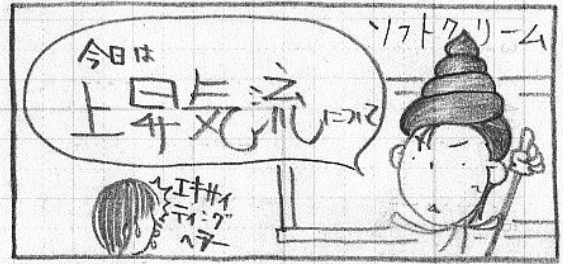 ソフトクリーム
今日は
上昇気流について
エキサイ
ティング
ヘアー